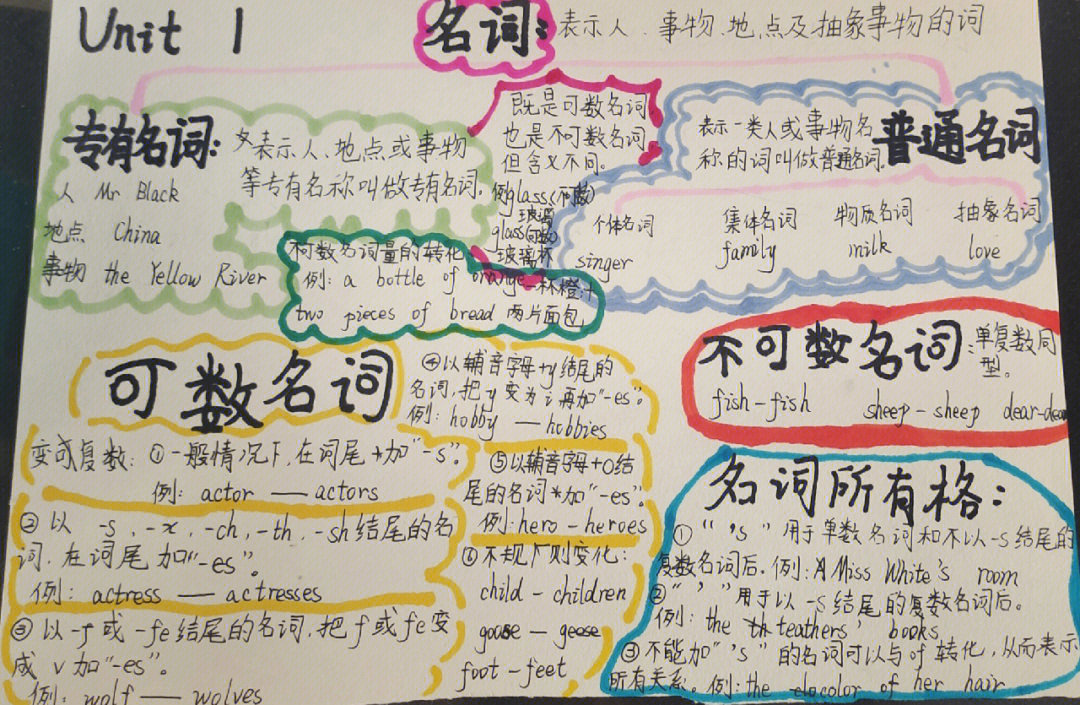 Unit 1
名词：表示人、事物、地点及抽象事物的词
专有名词：
表示人、地点或事物
等专有名称叫做专有名词。
人 Mr Black
地点 China
事物 the Yellow River
既是可数名词
也是不可数名词
但含义不同。
例glass(不可数)
玻璃
glass(可数)
玻璃杯
普通名词
表示一类人或事物名
称的词叫做普通名词。
个体名词 集体名词 物质名词 抽象名词
singer family milk love
不可数名词量的转化
例：a bottle of orange 一杯橙汁
two pieces of bread 两片面包
可数名词
变或复数：①一般情况下，在词尾加“-s”。
例：actor — actors
②以 -s，-x，-ch，-th，-sh结尾的名
词，在词尾加“-es”。
例：actress — actresses
③以-f或-fe结尾的名词，把f或fe变
成v加“-es”。
例：wolf — wolves
④以辅音字母+y结尾的
名词，把y变为i再加“-es”。
例：hobby — hobbies
⑤以辅音字母+o结
尾的名词加“-es”。
例：hero - heroes
⑥不规则变化：
child - children
goose - geese
foot - feet
不可数名词：单复数同
型。
fish - fish sheep - sheep dear-dear
名词所有格：
①“'s”用于单数名词和不以-s结尾的
复数名词后。例：Miss White's room
②“'”用于以-s结尾的复数名词后。
例：the teathers' books
③不能加“'s”的名词可以与of转化，从而表示
所有关系。例：the color of her hair